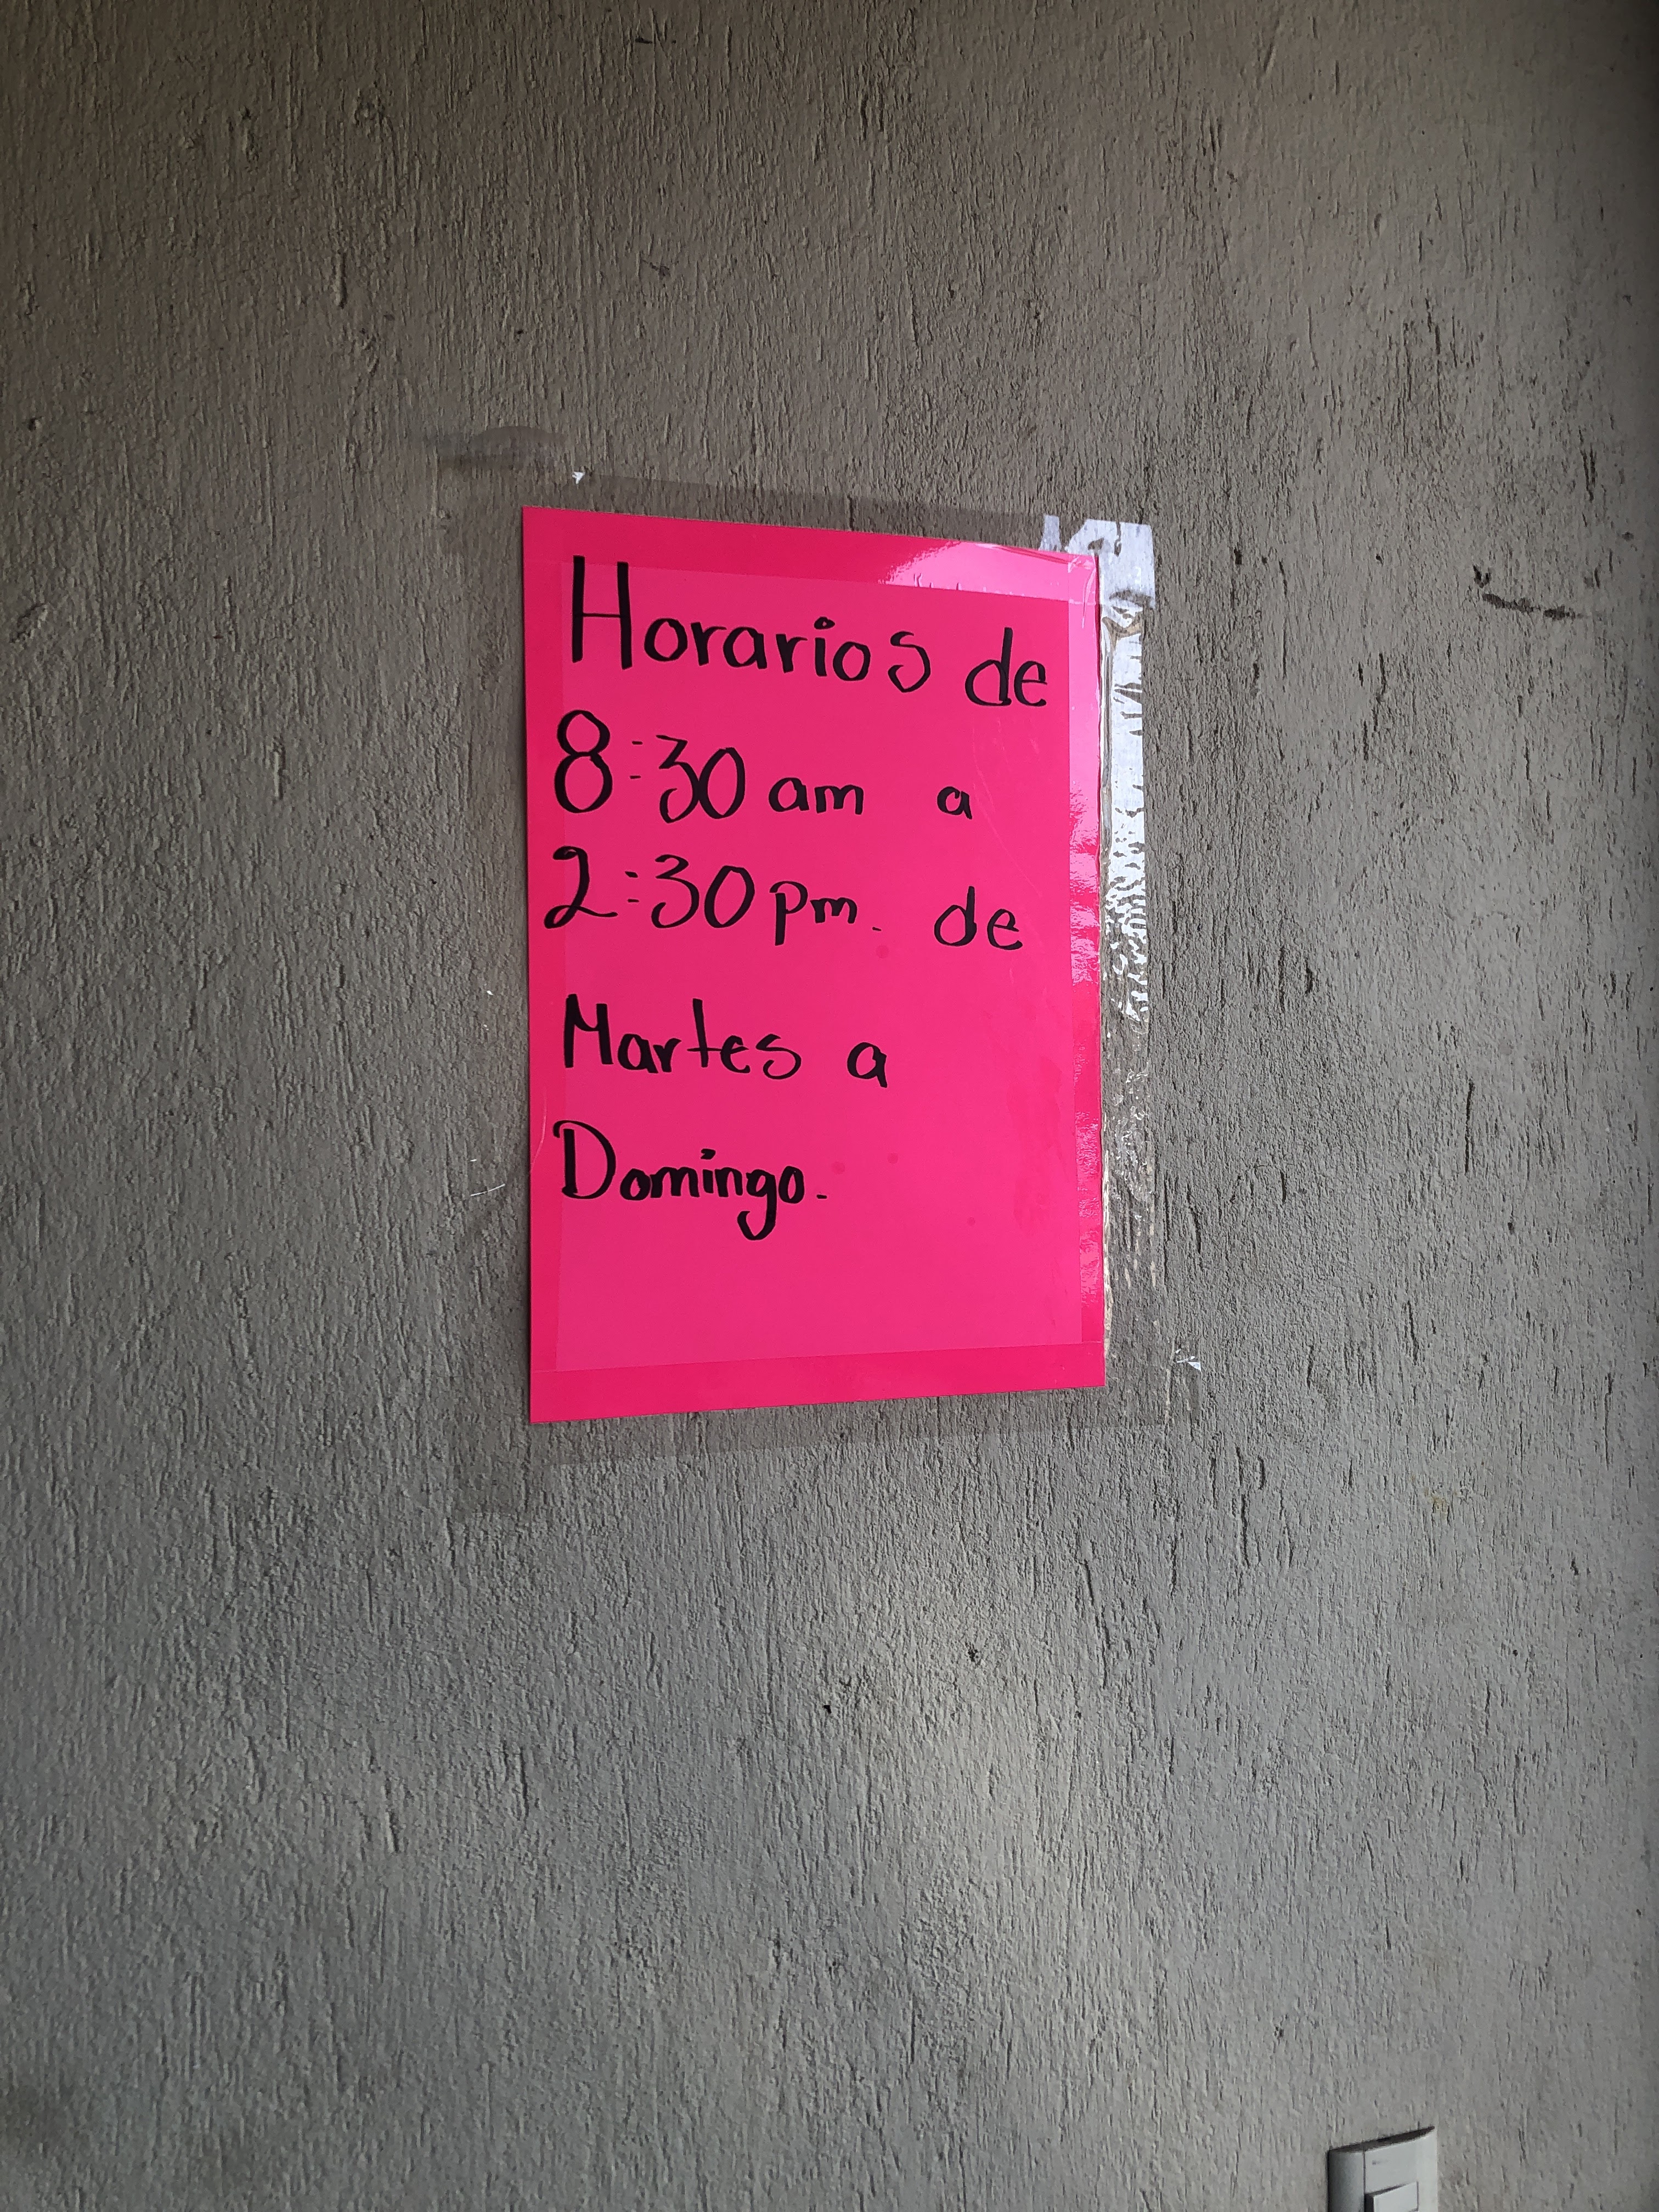 Horarios de
8:30 am a
2:30 pm. de
Martes a
Domingo.